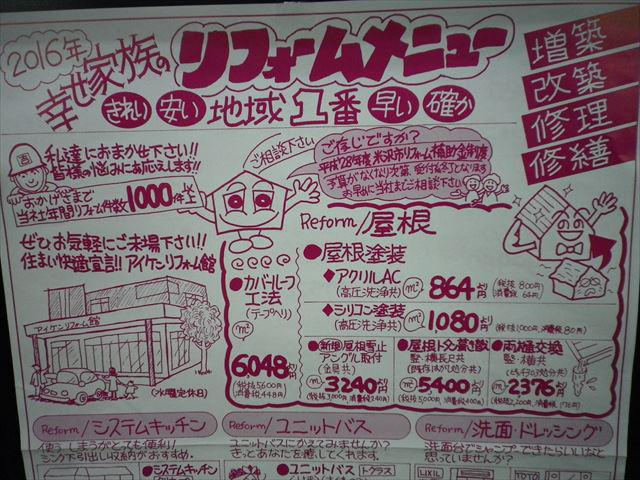 2016年
幸せ家族の
リフォームメニュー
きれい 安い 地域1番 早い 確か
増築
改築
修理
修繕
私達におまかせ下さい!!
皆様の悩みにお応えします!!
おかげさまで
当社は年間リフォーム件数1000件以上
ご相談下さい
ご存じですか?
平成28年度 米沢市リフォーム補助金制度
予算がなくなり次第、受付終了となります
お早めに当社までご相談下さい
ぜひ、お気軽にご来場下さい!!
住まい快適宣言!! アイケンリフォーム館
アイケンリフォーム館
(水曜定休日)
Reform/屋根
●カバールーフ
工法
(テープベリ)
㎡
6,048より円
(税抜5,600円
消費税448円)
●屋根塗装
◆アクリルAC
(高圧洗浄共)
㎡ 864より円
(税抜800円
消費税64円)
◆シリコン塗装
(高圧洗浄共)
㎡ 1080より円
(税抜1,000円、消費税80円)
●(新規)屋根雪止
アングル取付
(金具共)
3240より円
(税抜3,000円、消費税240円)
●屋根トタン葺き敷
堅・横長尺共
(既存はがし処分共)
㎡ 5400より円
(税抜5,000円、消費税400円)
●雨樋交換
堅・横共
2376より円
(税抜2,200円、消費税176円)
Reform/システムキッチン
使う、しまうがとても便利!
シンク下引出し収納がおすすめ。
●システムキッチン
Reform/ユニットバス
ユニットバスにかえてみませんか?
きっとあなたを癒してくれます。
●ユニットバス トクラス
Reform/洗面・ドレッシング
洗面台でシャンプーできたらいいなと
思っていませんか?
LIXIL
TOTO